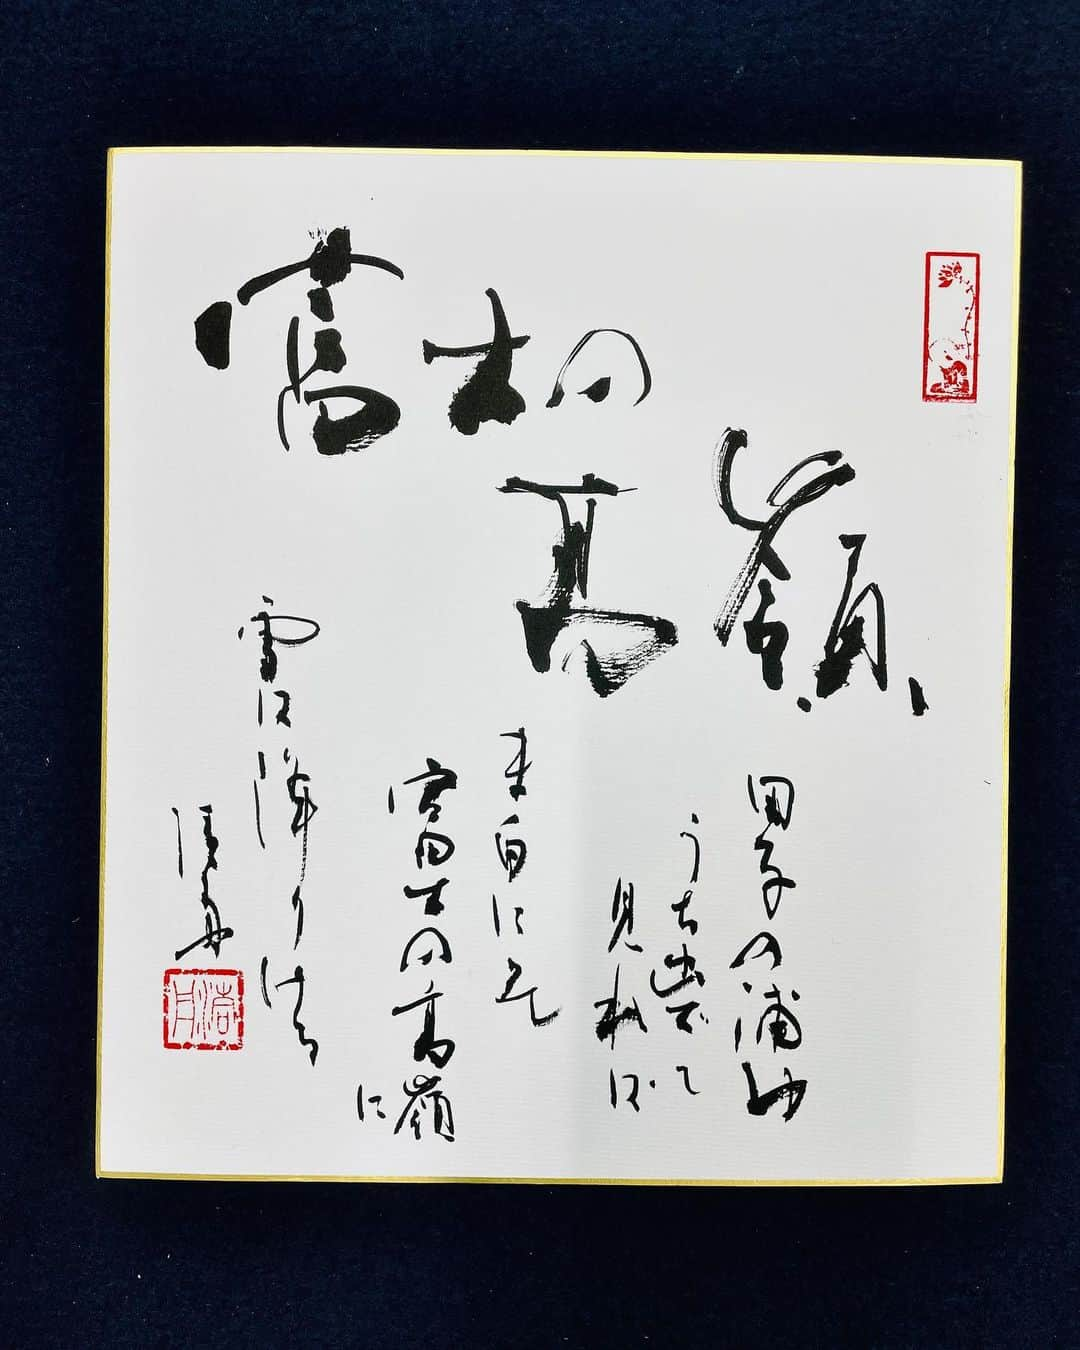 富士の
高嶺
田子の浦ゆ
うち出でて
見れば
ま白にそ
富士の高嶺
に
雪は降りける